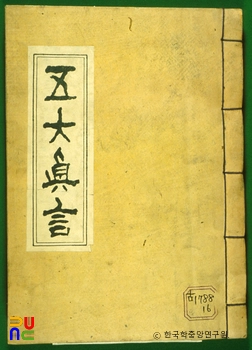 五大眞言
古1788
16
ⓒ한국학중앙연구원